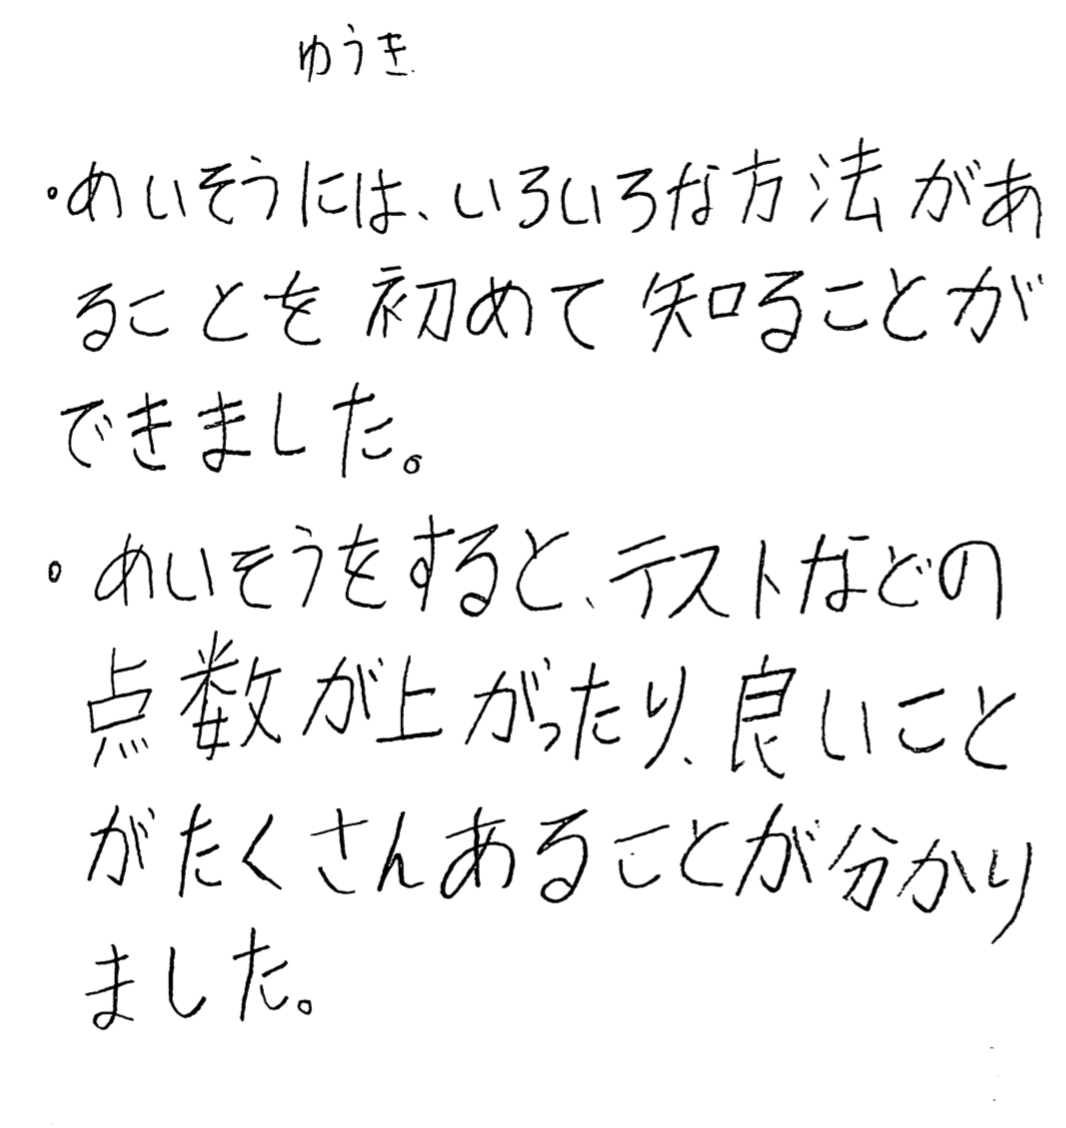 ゆうき
・めいそうには、いろいろな方法があ
ることを初めて知ることが
できました。
・めいそうをすると、テストなどの
点数が上がったり、良いこと
がたくさんあることが分かり
ました。